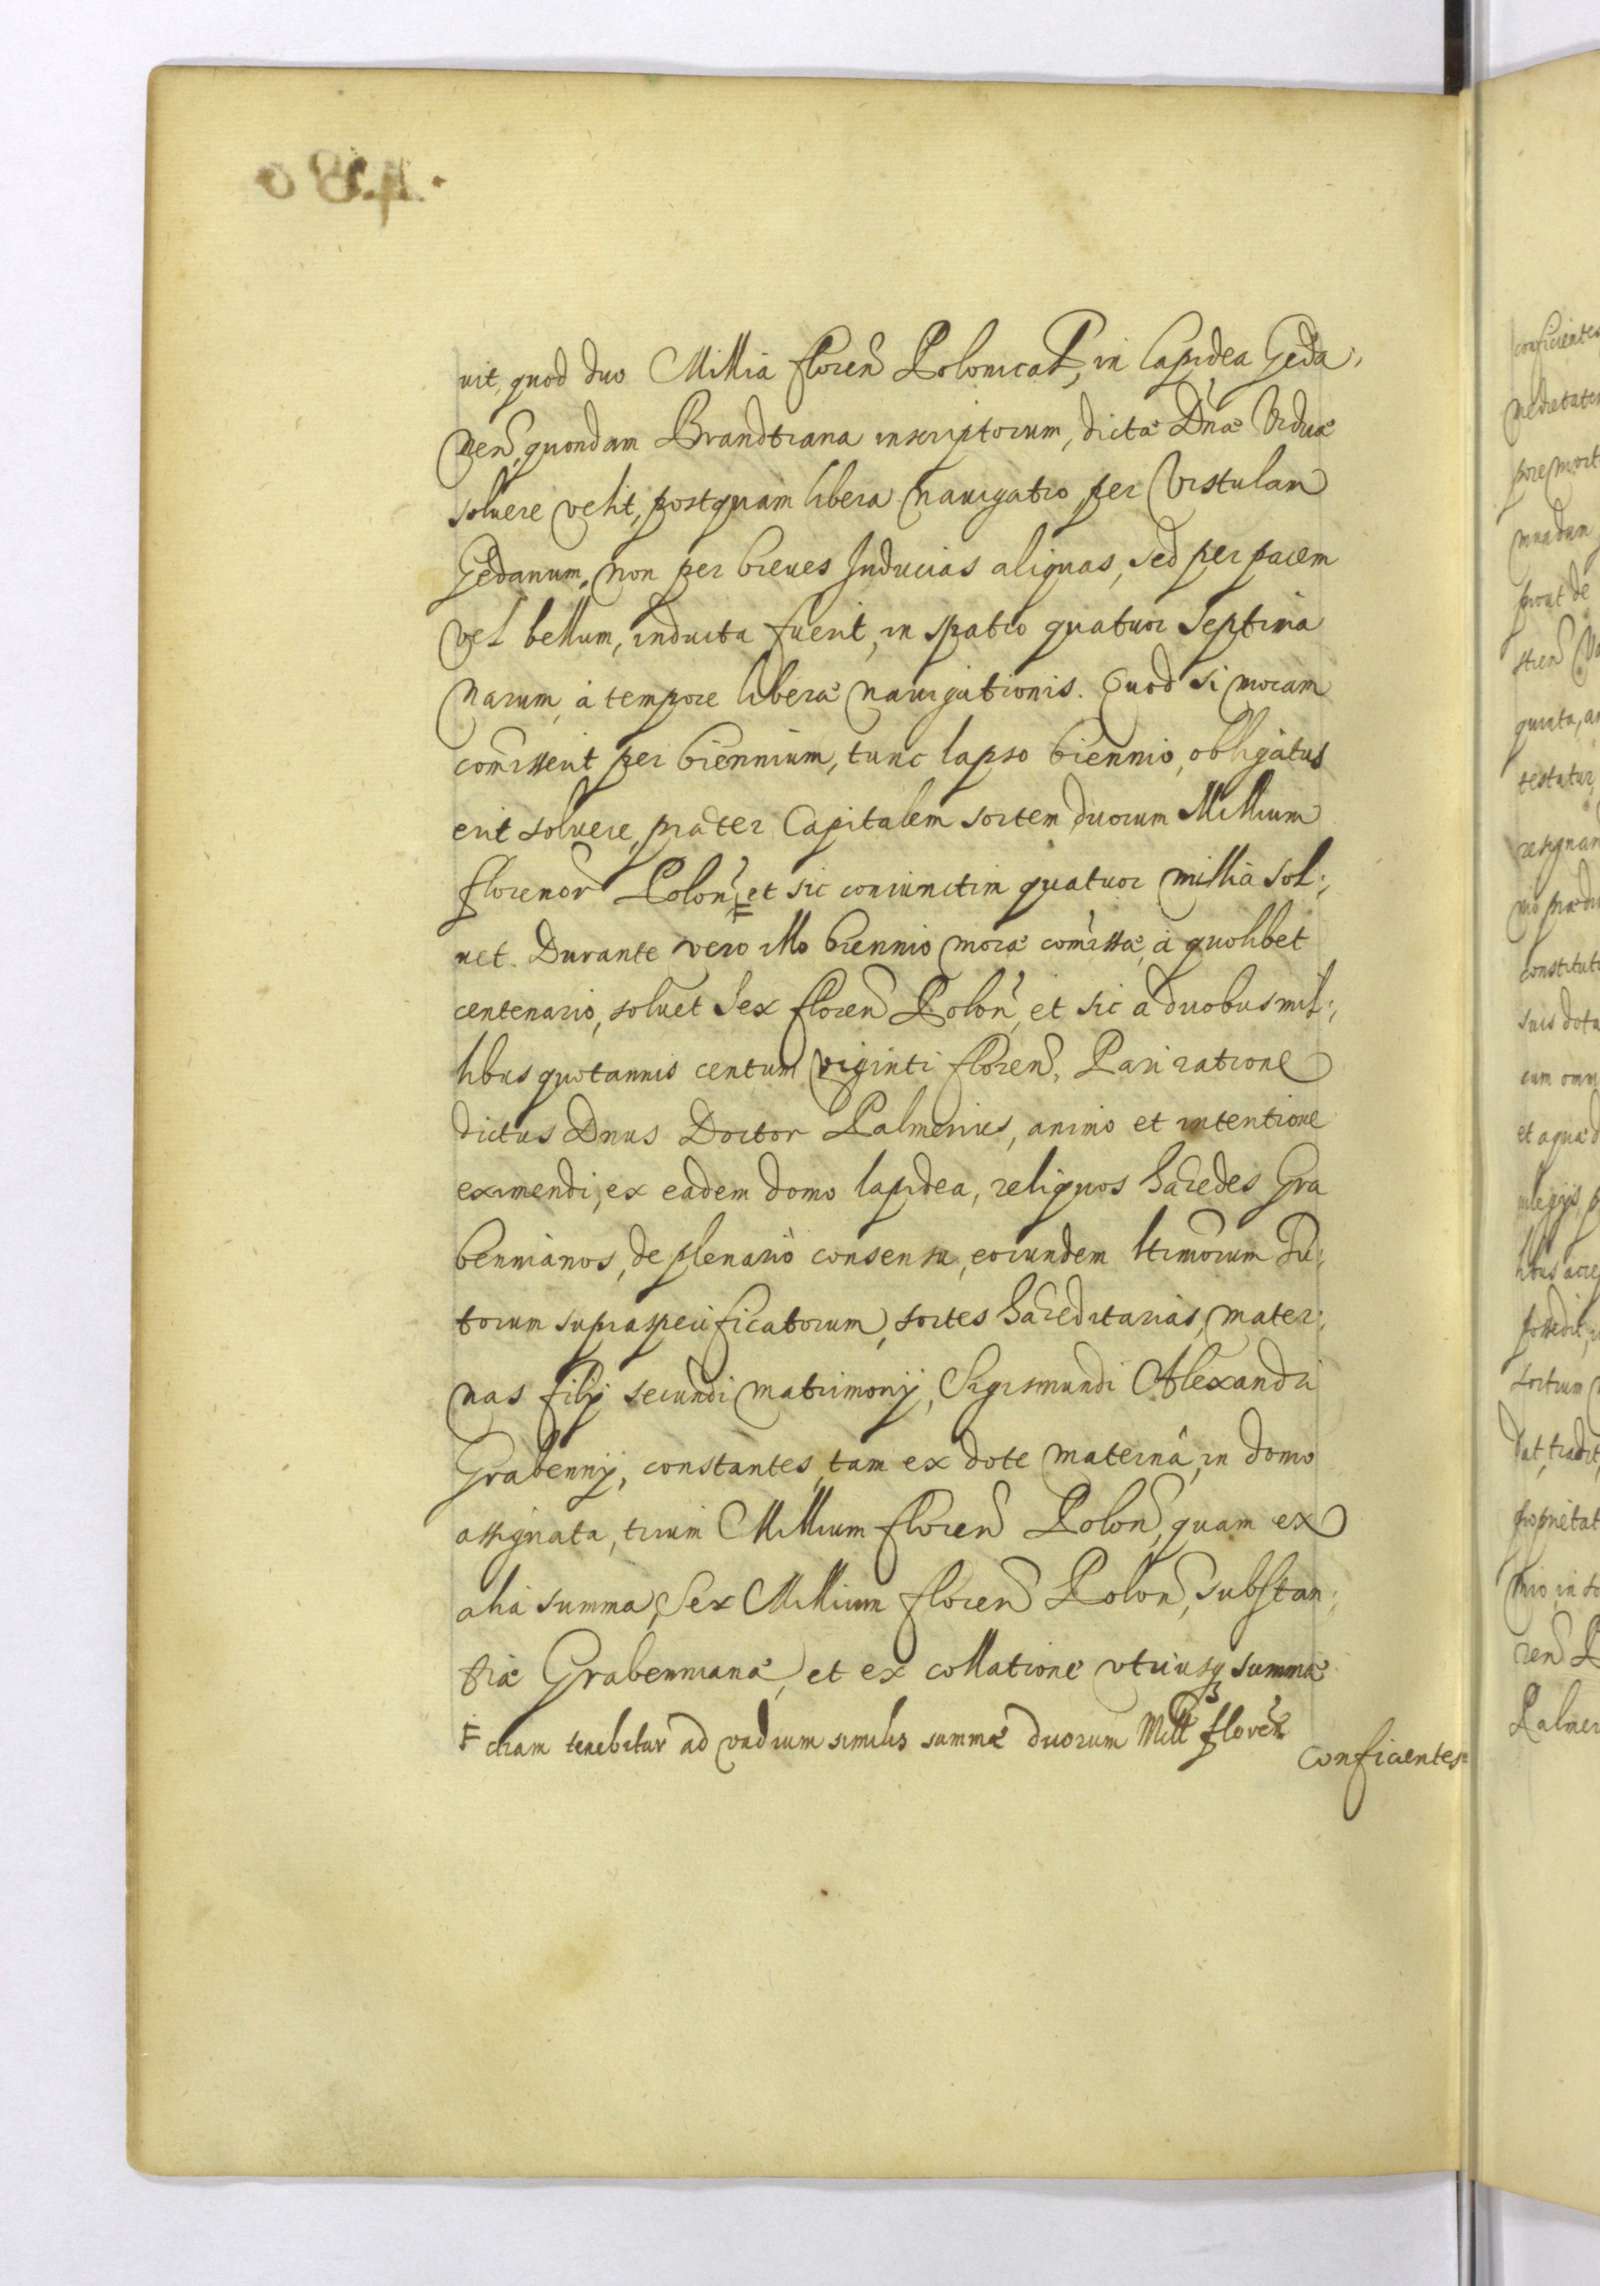 uit, quod duo Millia floren Polonical, in lapidea Geda:
nen, quondam Brandtiana inscriptorum, dictæ Dnæ Viduæ
soluere velit, postquam libera nauigatio per Vistulam
Gedanum, non per breues Inducias aliquas, sed per pacem
vel bellum, inducta fuerit, in spatio quatuor Septima
narum, à tempore liberæ nauigationis. Quod si moram
comiserit per biennium, tunc lapso biennio, obligatus
erit soluere, præter Capitalem sortem duorum Millium
florenor Polon, et sic coniunctim quatuor millia sol:
uet. Durante vero illo biennio moræ comissæ, à quolibet
centenario, soluet Sex floren Polon, et sic a duobus mil:
libus quotannis centum viginti floren. Pari ratione
dictus Dnus Doctor Palmenius, animo et intentione
eximendi, ex eadem domo lapidea, reliquos hæredes Gra
bennianos, de plenario consensu, eorundem ltimorum Tu:
torum supraspecificatorum, sortes hæreditarias, mater:
nas filij secundi matrimonij, Sigismundi Alexandri
Grabennij, constantes, tam ex dote maternâ, in domo
assignata, trium Millium floren Polon, quam ex
alia summa, Sex Millium floren Polon, substan:
tiæ Grabennianæ, et ex collatione vtriusq summæ
etiam tenebitur ad vadium similis summæ duorum Mill floren
conficientes
conficientes
medietatem
pore mort
prout de
quieta, a
testatur,
resignan
constitut
suis dota
cum omn
et aquæ d
possedit,
sortium
dat, tradit,
proprietat
ren P
Palmen